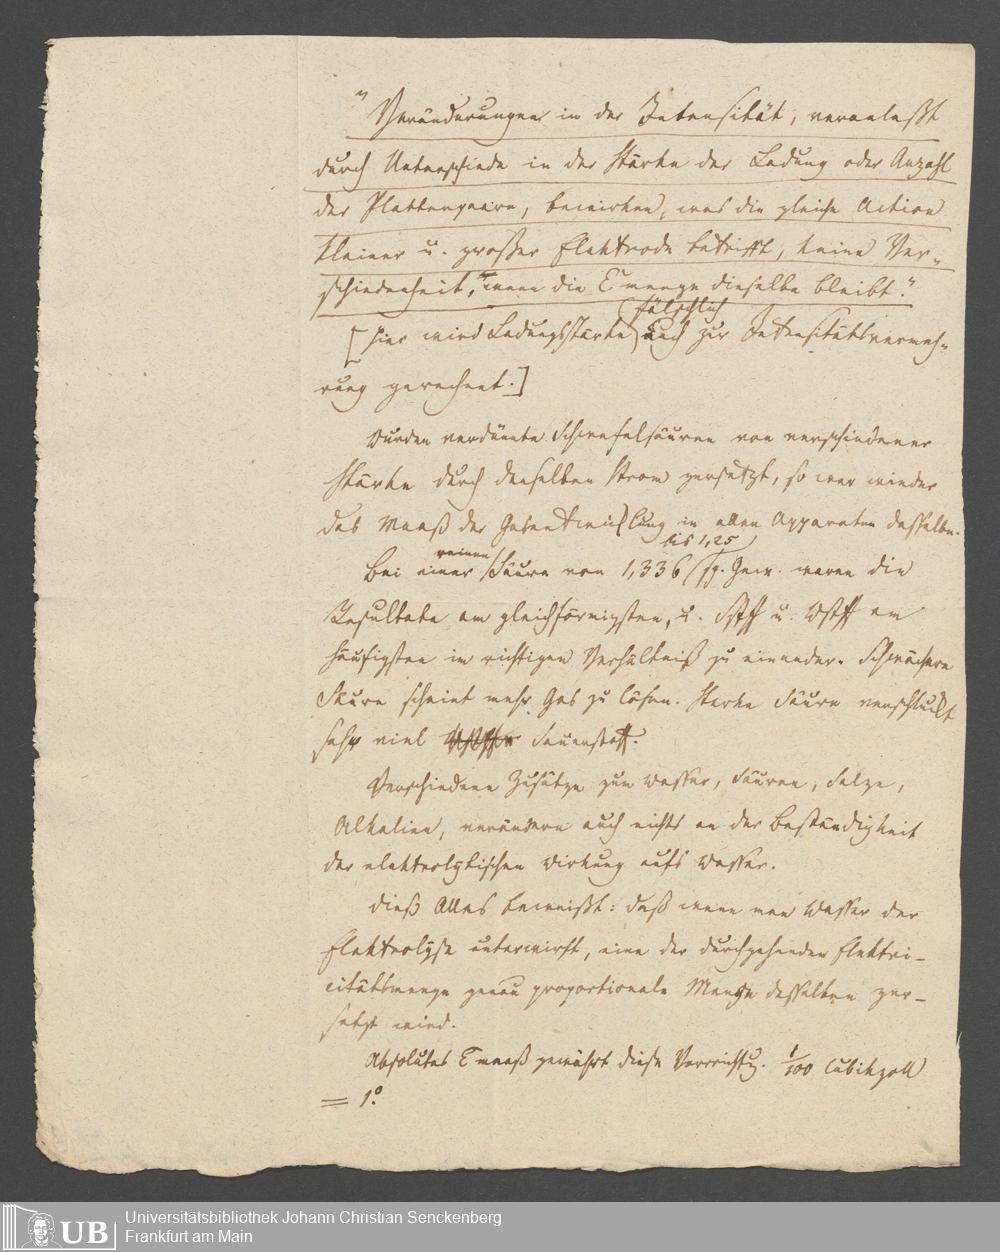 "Veränderungen in der Intensität, veranlaßt
durch Unterschiede in der Stärke der Ladung oder Anzahl
der Plattenpaare, bewirken, was die gleiche Action
kleiner u. großer Elektrode betrifft, keine Ver-
schiedenheit, wenn die E menge dieselbe bleibt."
[Hier wird Ladungsstärke fälschlich auch zur Intensitätsvermeh-
rung gerechnet.]
Wurden verdünnte Schwefelsäuren von verschiedener
Stärke durch denselben Strom zersetzt, so war wieder
das Maaß der Gasentwicklung in allen Apparaten dasselbe.
Bei einer reinen Säure von 1,336 bis 1,25 sp. Gew. waren die
Resultate am gleichförmigsten, u. Sstff u. Wstff am
häufigsten im richtigen Verhältniß zu einander. Schwächere
Säure scheint mehr Gas zu lösen. Starke Säure verschluckt
sehr viel Sauerstoff.
Verschiedene Zusätze zum Wasser, Säuren, Salze,
Alkalien, verändern auch nichts an der Beständigkeit
der elektrolytischen Wirkung aufs Wasser.
Dieß Alles beweißt: daß wenn man Wasser der
Elektrolyse unterwirft, eine der durchgehenden Elektri-
citätsmenge genau proportionale Menge desselben zer-
setzt wird.
Absolutes E maaß gewährt diese Vorrichtg. 1/100 Cubikzoll
= 1°.
UB
Universitätsbibliothek Johann Christian Senckenberg
Frankfurt am Main